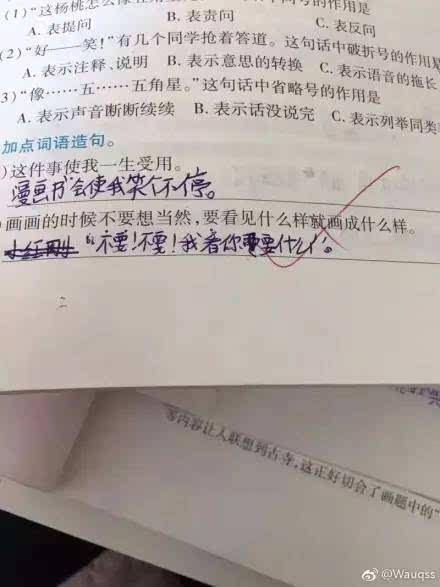 (1)"这杨桃怎么像五
号的作用是
A. 表提问 B. 表责问 C. 表反问
(2)"好——笑!"有几个同学抢着答道。这句话中破折号的作用是
A. 表示注释、说明 B. 表示意思的转换 C. 表示语音的拖长
3)"像……五……五角星。"这句话中省略号的作用是
A. 表示声音断断续续 B. 表示话没说完 C. 表示列举同类
加点词语造句。
)这件事使我一生受用。
漫画书会使我笑个不停。
)画画的时候不要想当然,要看见什么样就画成什么样。
"不要!不要!我看你要什么"。
等内容让人联想到古寺,这正好切合了画题中的"
@Wauqss